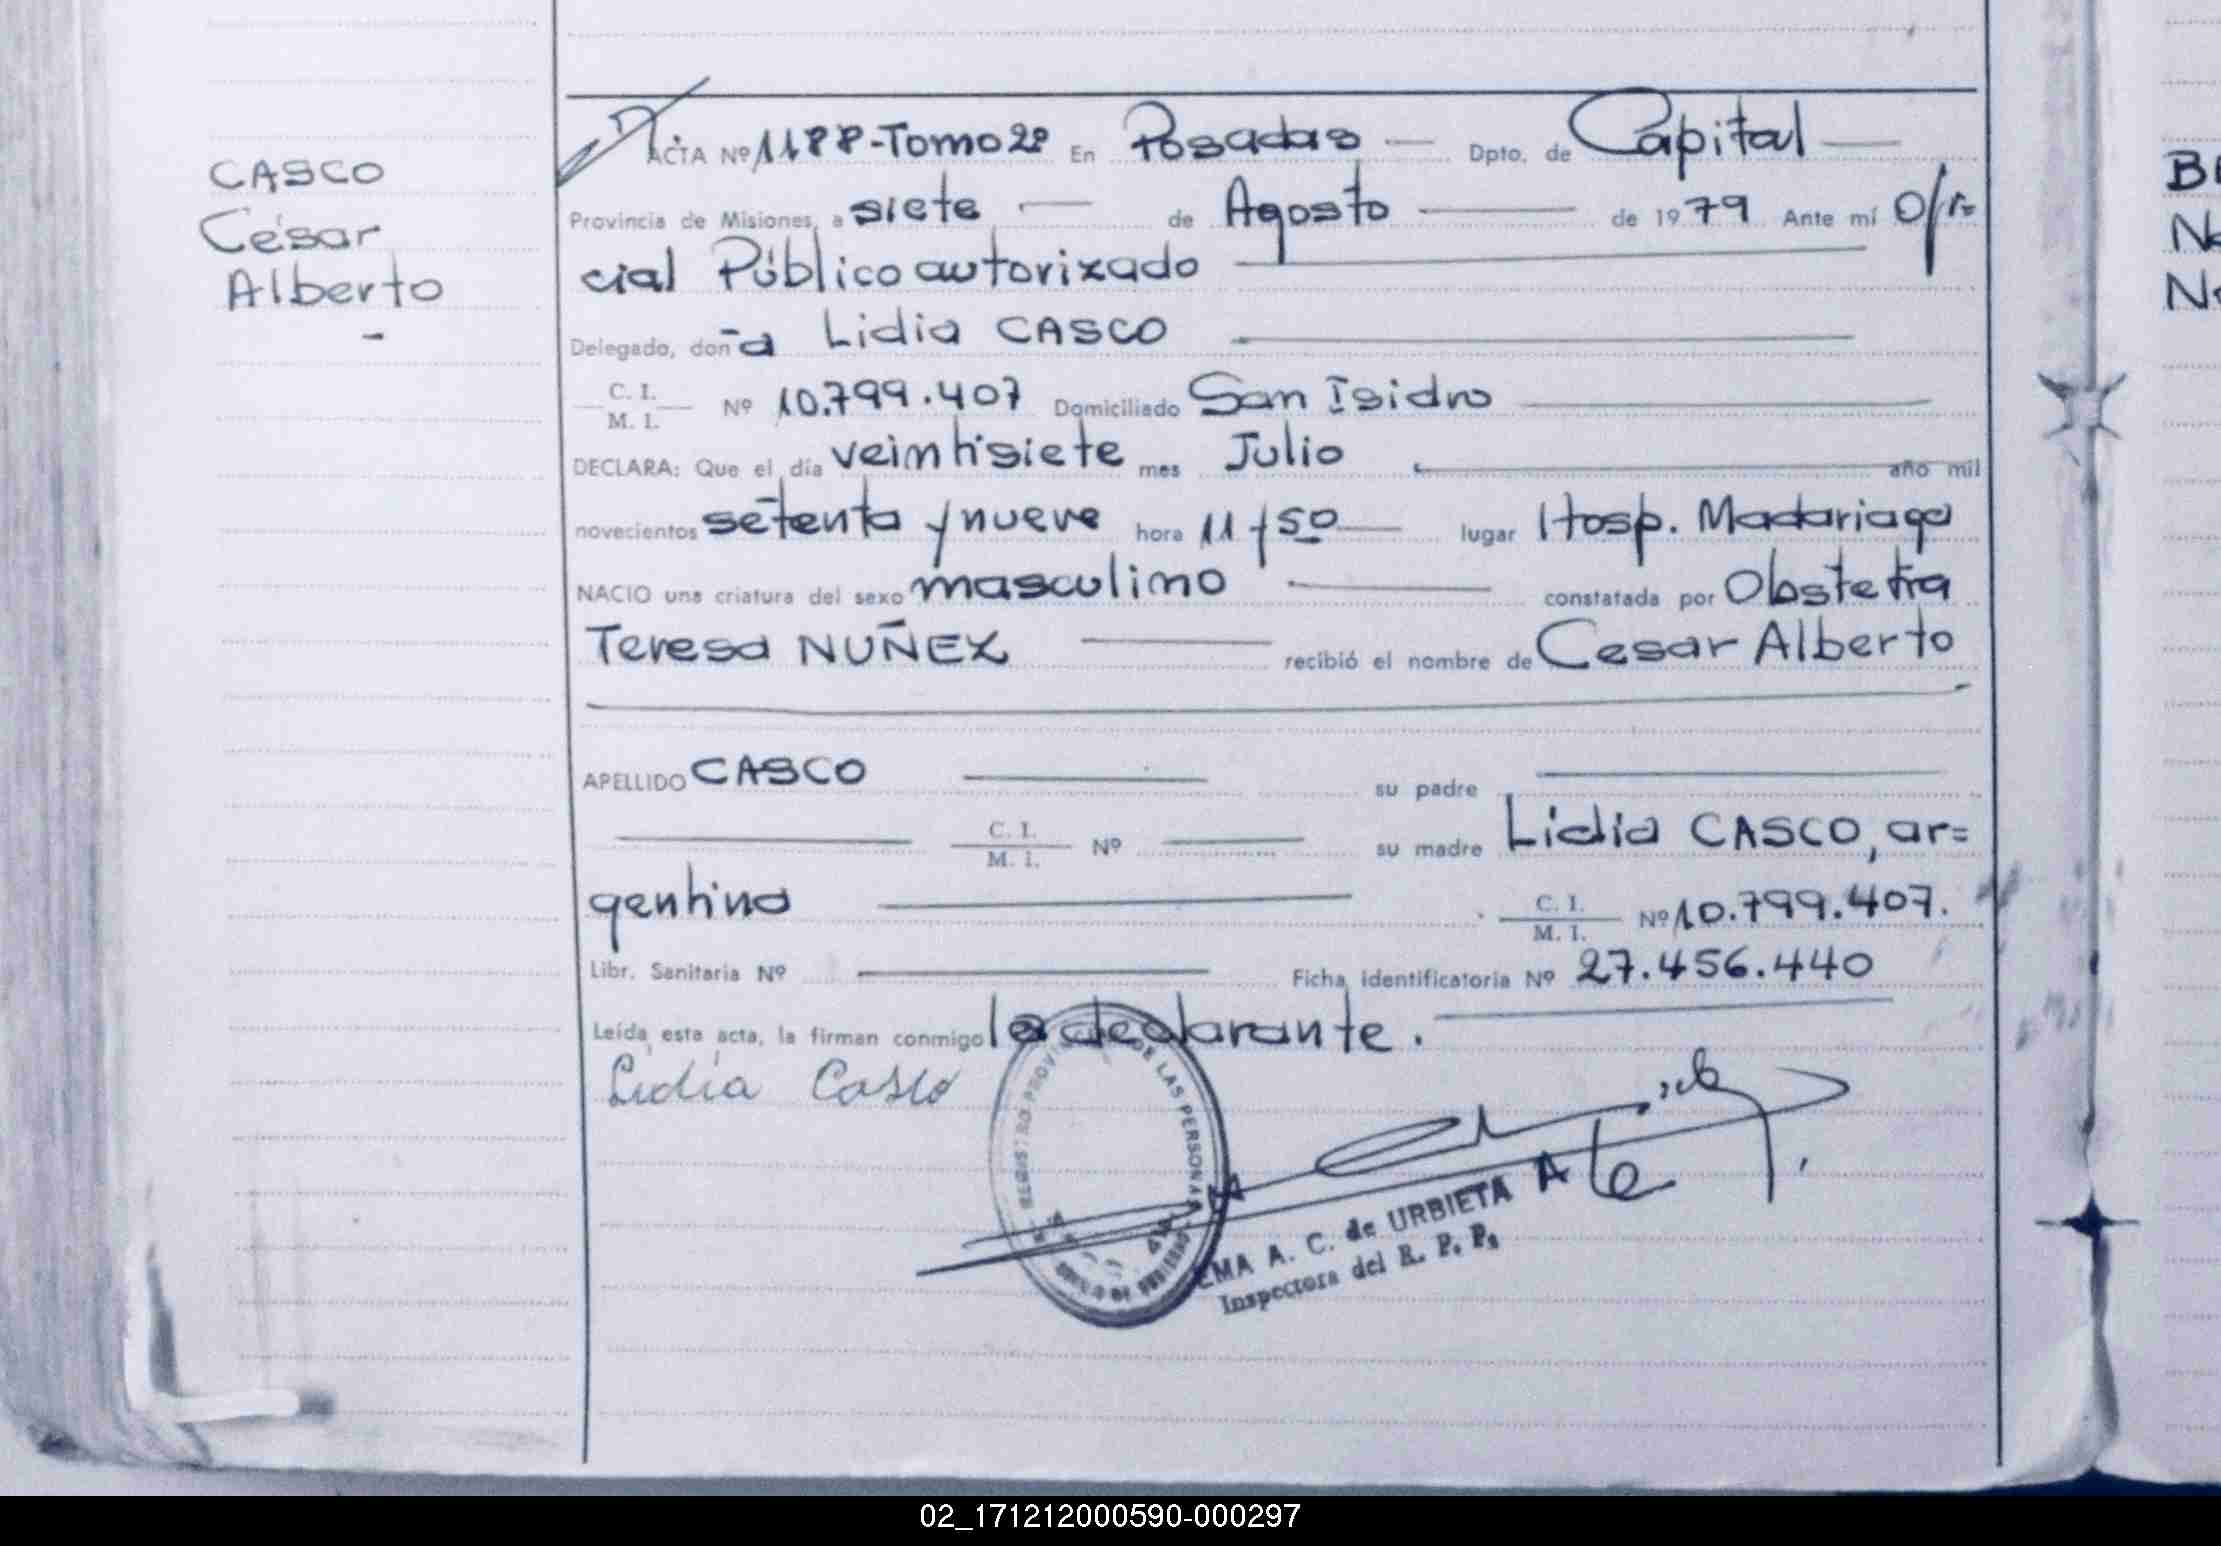 CASCO
César
Alberto
-
ACTA Nº 1188-Tomo 2º En Posadas — Dpto. de Capital —
Provincia de Misiones, a siete — de Agosto — de 1979 Ante mí Ofi=
cial Público autorizado —
Delegado, doña Lidia CASCO —
C. I.
M. I. Nº 10.799.407 Domiciliado San Isidro —
DECLARA: Que el día veintisiete mes Julio — año mil
novecientos setenta y nueve hora 11 y 50 — lugar Hosp. Madariaga
NACIO una criatura del sexo masculino — constatada por Obstetra
Teresa NUÑEZ — recibió el nombre de Cesar Alberto
APELLIDO CASCO — su padre —
— C. I.
M. I. Nº — su madre Lidia CASCO, ar=
gentina — C. I.
M. I. Nº 10.799.407.
Libr. Sanitaria Nº — Ficha identificatoria Nº 27.456.440
Leída esta acta, la firman conmigo la declarante. —
Lidia Casco
DE LAS PERSONAS
A. C. de URBIETA
Inspectora del R. P. P.
BE
02_171212000590-000297